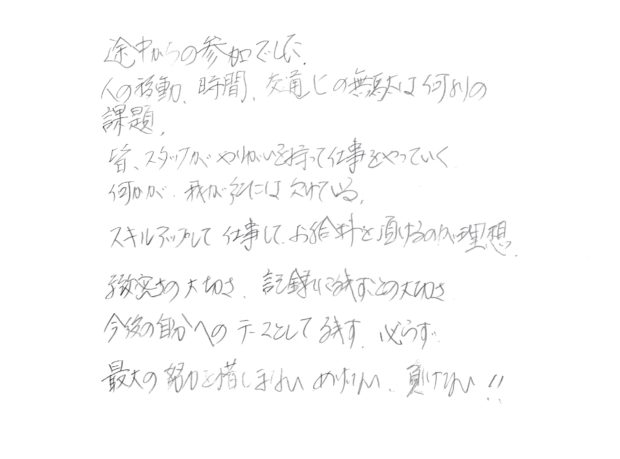 途中からの参加でした、
人の移動、時間、交通ヒの無駄は何よりの
課題。
皆、スタッフがやりがいを持って仕事をやっていく
何かが、我が社には欠けている。
スキルアップして仕事して、お給料を頂けるのが理想。
緻密さの大切さ、記録に残すことの大切さ
今後の自分へのテースとして残す、必らず
最大の努力を惜しまない めげない、負けない!!